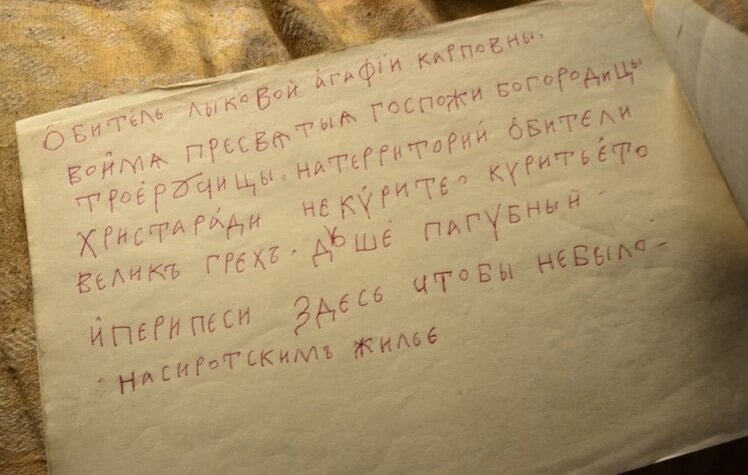 Ѻбитéль лыковой áгафíи карповны.
войма пресватыѧ госпожи богородицы
троéрꙋчицы. натерриторий ѻбители
христарáди некýрите. куритьéто
великъ грехъ. дꙋшé пагꙋбный -
и҆перипеси здесь чтобы небыло -
. насиротскимъ жилье